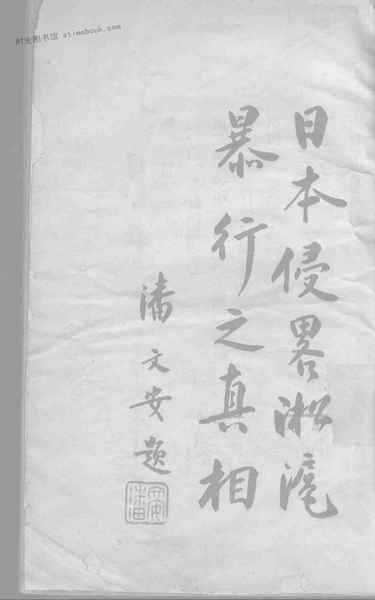 时光图书馆 atimebook.com
日本侵畧淞滬
暴行之真相
潘文安題